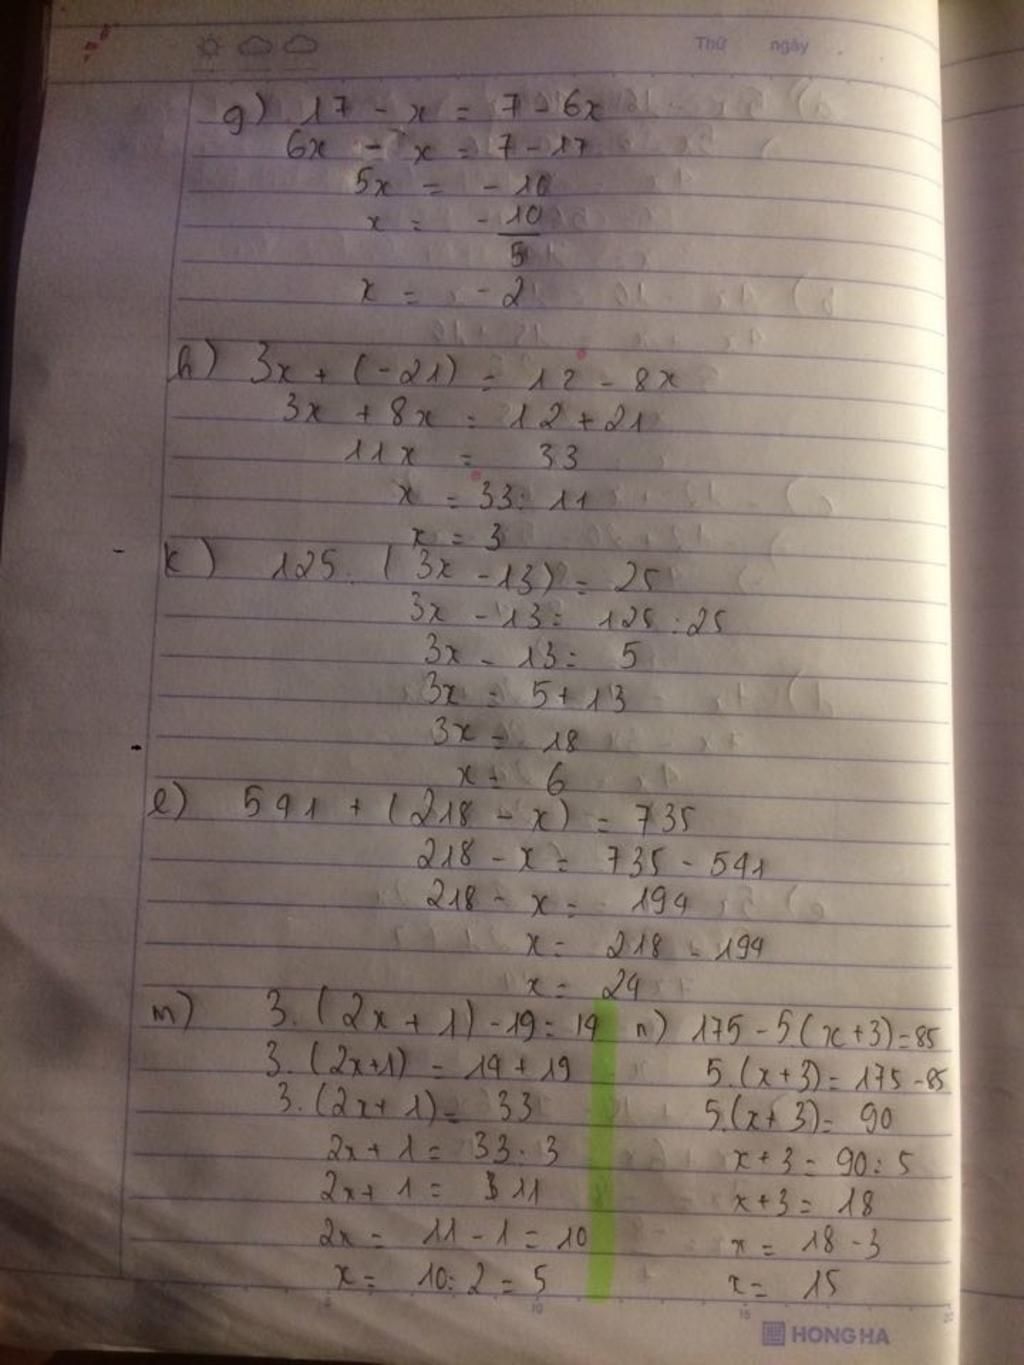 Thứ ngày
g) 17 - x = 7 - 6x
6x - x = 7 - 17
5x = - 10
x = - 10/5
x = - 2
h) 3x + (-21) = 12 - 8x
3x + 8x = 12 + 21
11x = 33
x = 33 : 11
x = 3
k) 125 . (3x - 13) = 25
3x - 13 = 125 : 25
3x - 13 = 5
3x = 5 + 13
3x = 18
x = 6
l) 541 + (218 - x) = 735
218 - x = 735 - 541
218 - x = 194
x = 218 - 194
x = 24
m) 3. (2x + 1) - 19 = 14
3. (2x+1) = 14 + 19
3. (2x + 1) = 33
2x + 1 = 33 : 3
2x + 1 = 11
2x = 11 - 1 = 10
x = 10 : 2 = 5
n) 175 - 5.(x+3) = 85
5.(x+3) = 175 - 85
5.(x+3) = 90
x+3 = 90 : 5
x+3 = 18
x = 18 - 3
x = 15
5 10 15
HONG HA